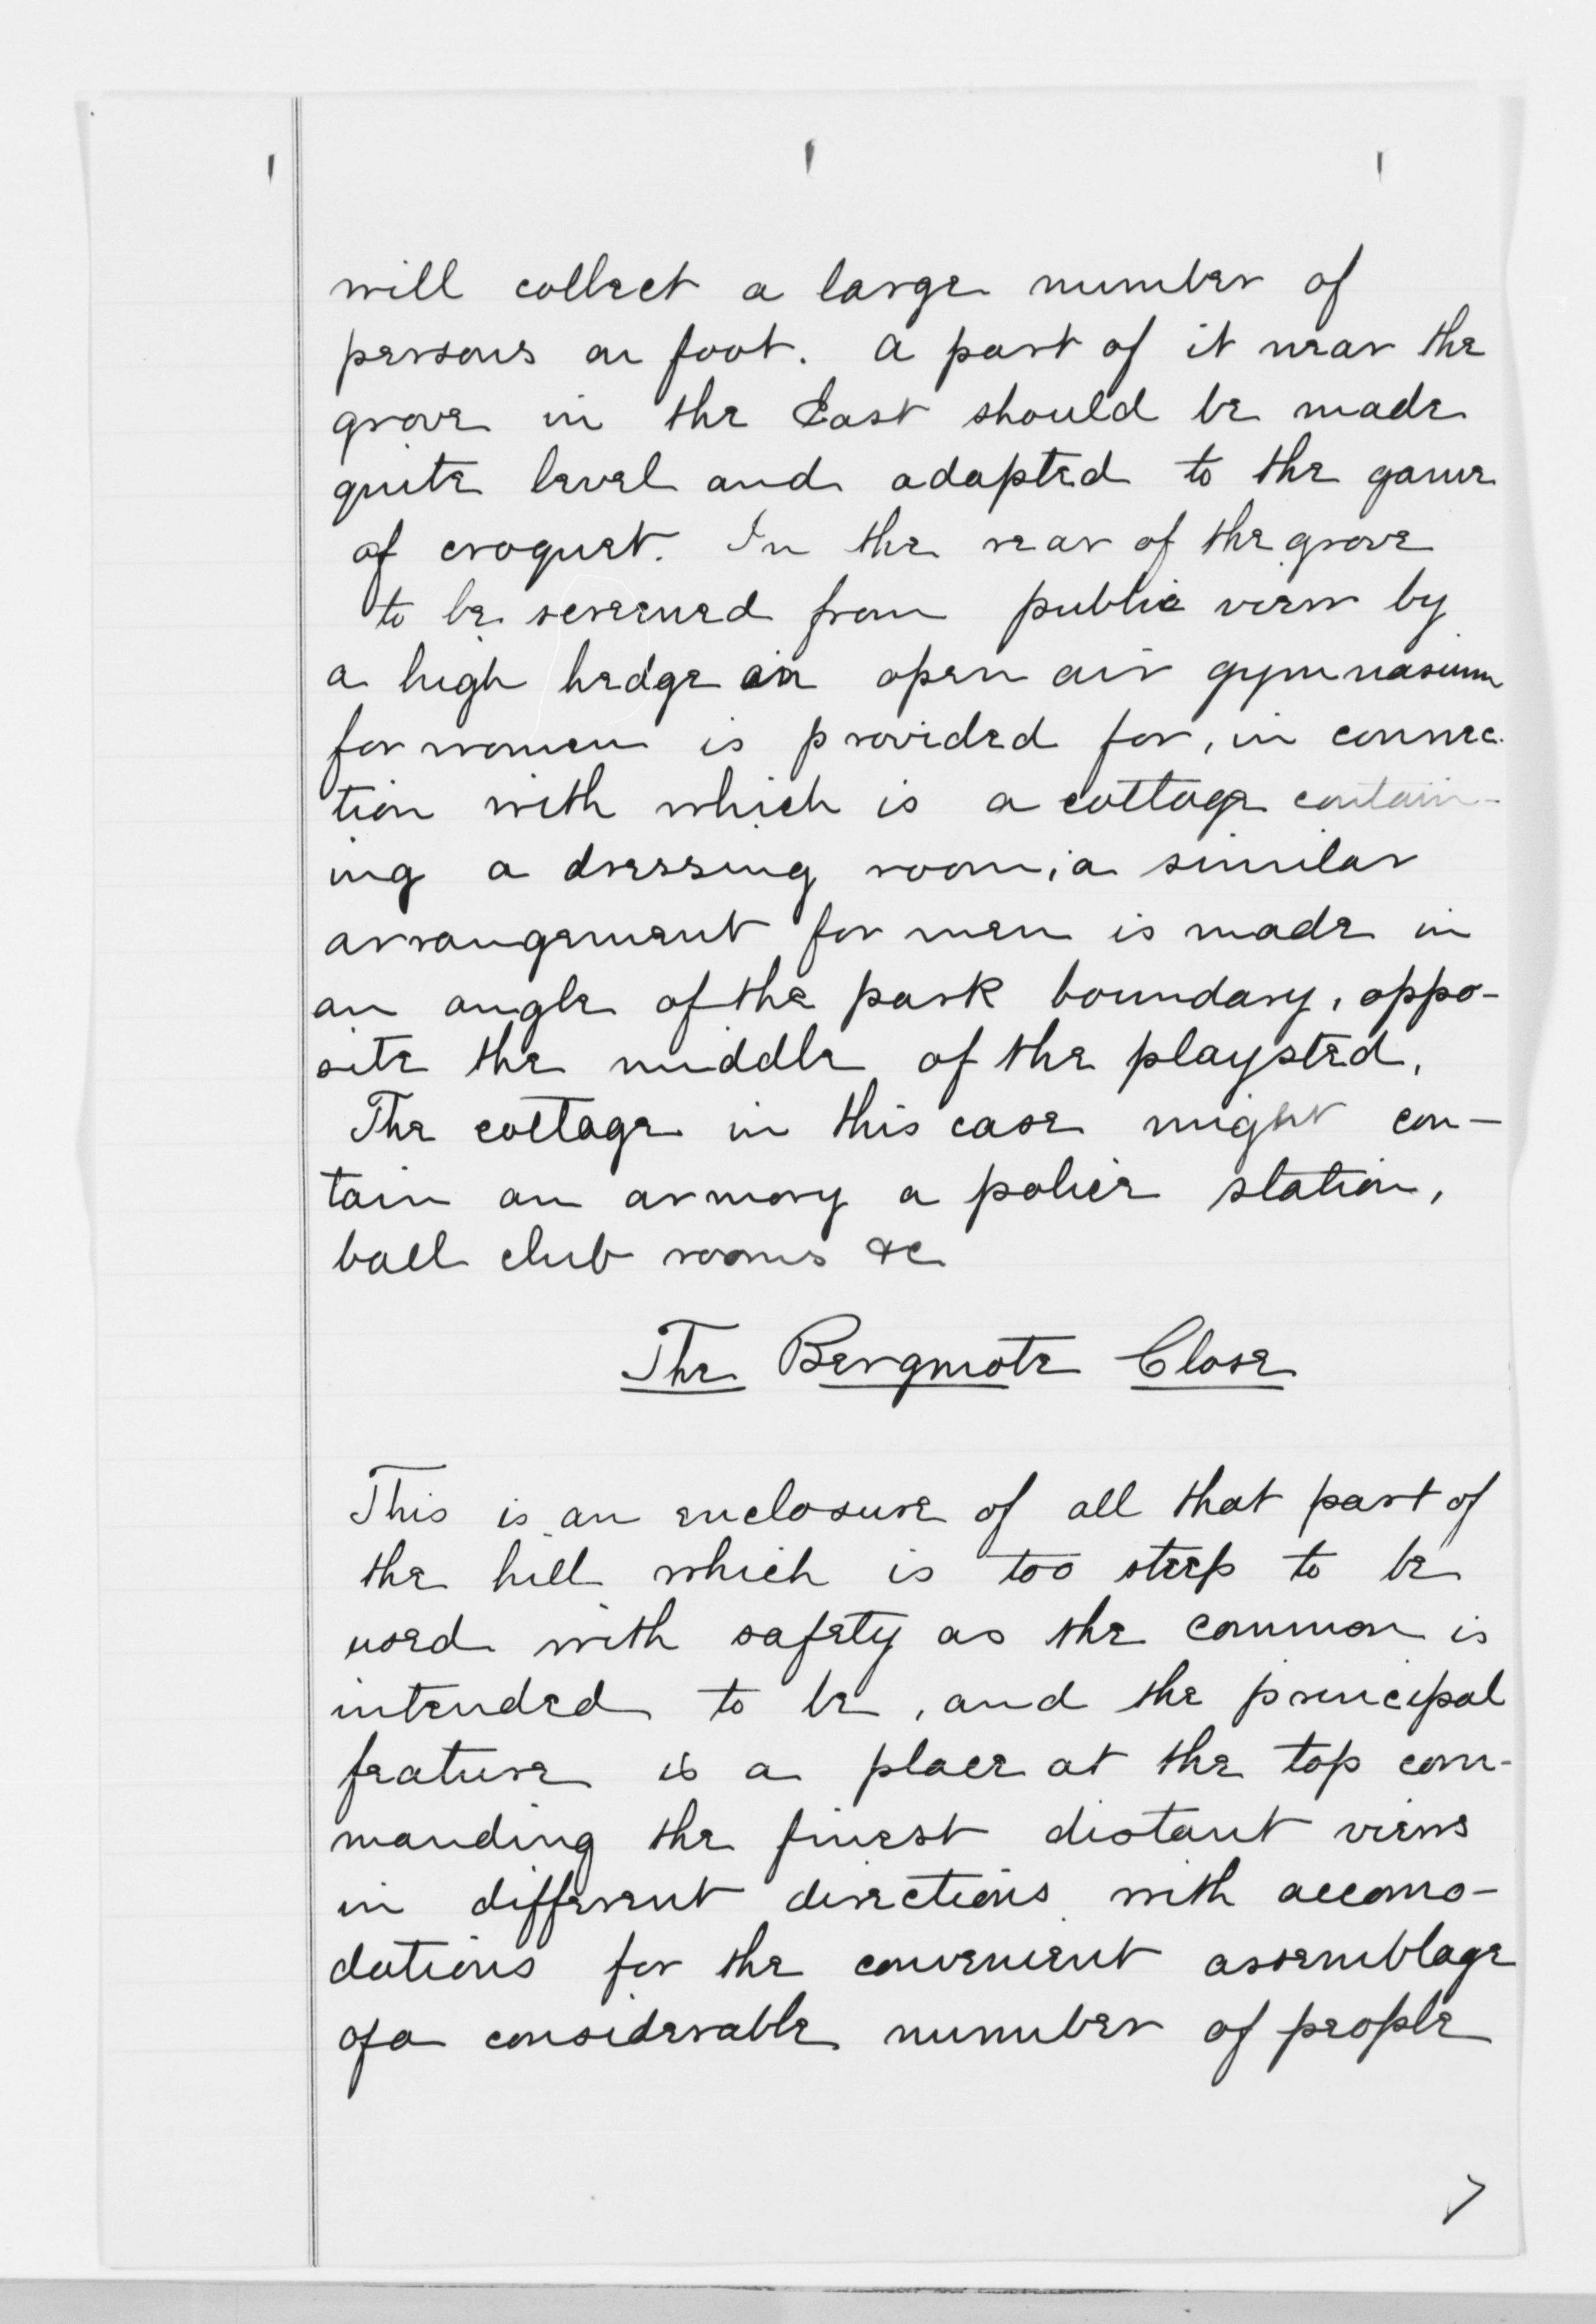 will collect a large number of
persons on foot. A part of it near the
grove in the East should be made
quite level and adapted to the game
of croquet. In the rear of the grove
to be screened from public view by
a high hedge an open air gymnasium
for women is provided for, in connec-
tion with which is a cottage contain-
ing a dressing room; a similar
arrangement for men is made in
an angle of the park boundary, oppo-
site the middle of the playsted.
The cottage in this case might con-
tain an armory a police station,
ball club rooms &c
The Bergmote Close
This is an enclosure of all that part of
the hill which is too steep to be
used with safety as the common is
intended to be, and the principal
feature is a place at the top com-
manding the finest distant views
in different directions with accomo-
dations for the convenient assemblage
of a considerable number of people
7